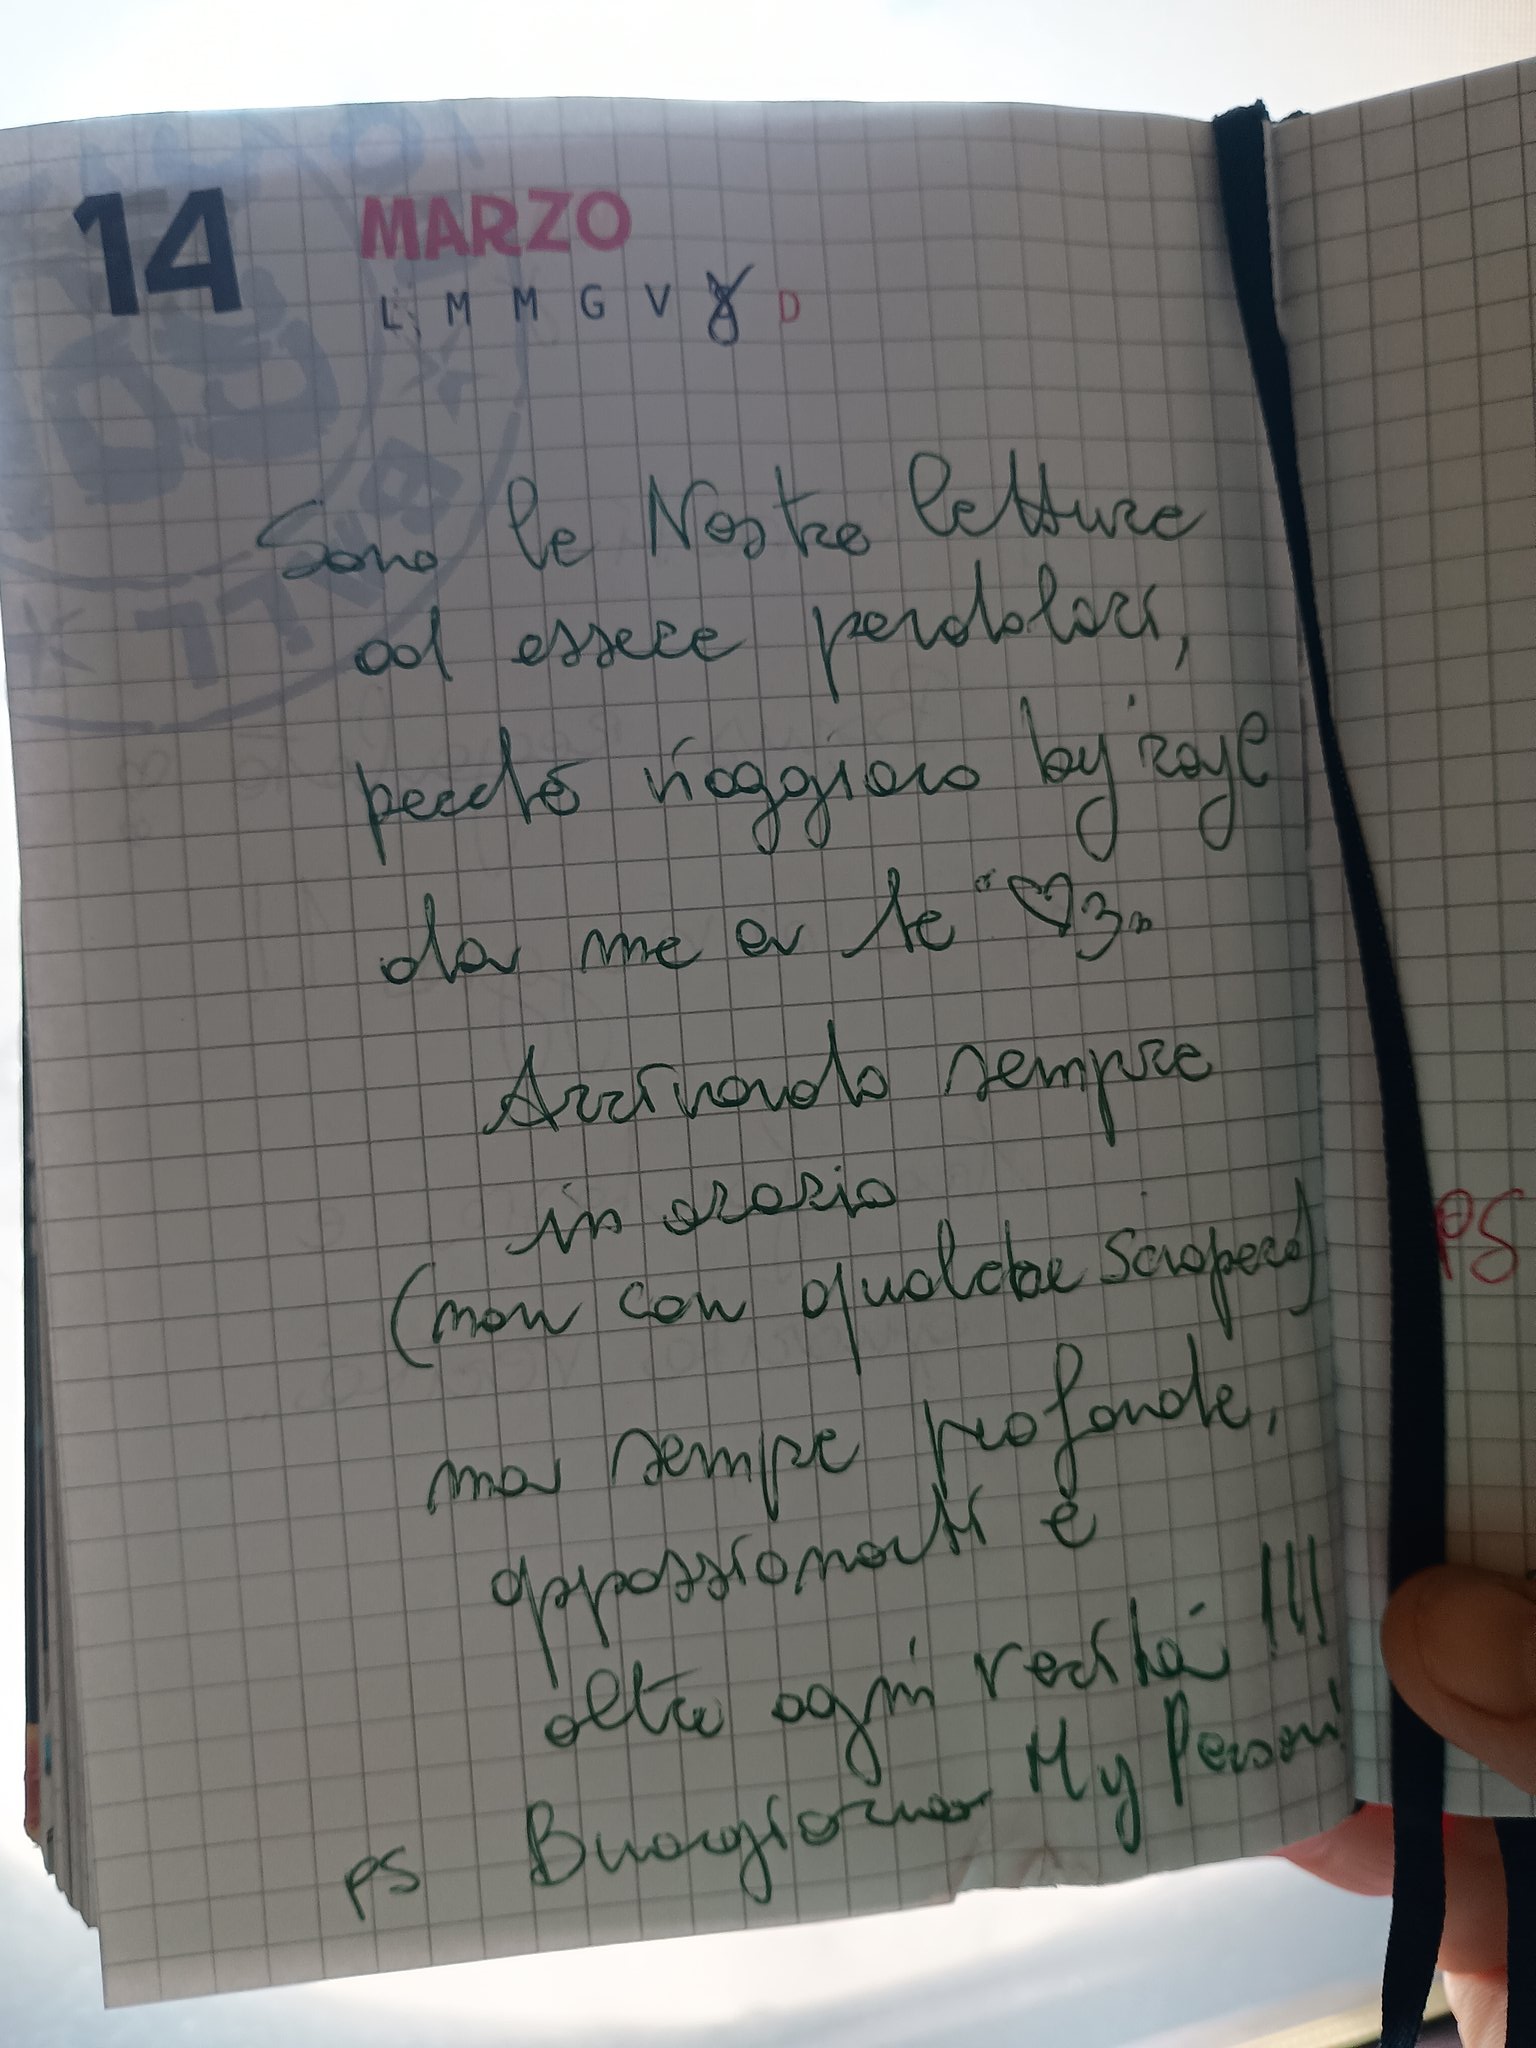 14 MARZO
L M M G V S D
Sono le Nostre letture
ad essere pendolari,
perché viaggiano by
da me a te "♡3"
Arrivando sempre
in orario
(non con qualche sciopero)
ma sempre profonde,
appassionati e
oltre ogni verità !!!
ps Buongiorno My Person!
PS